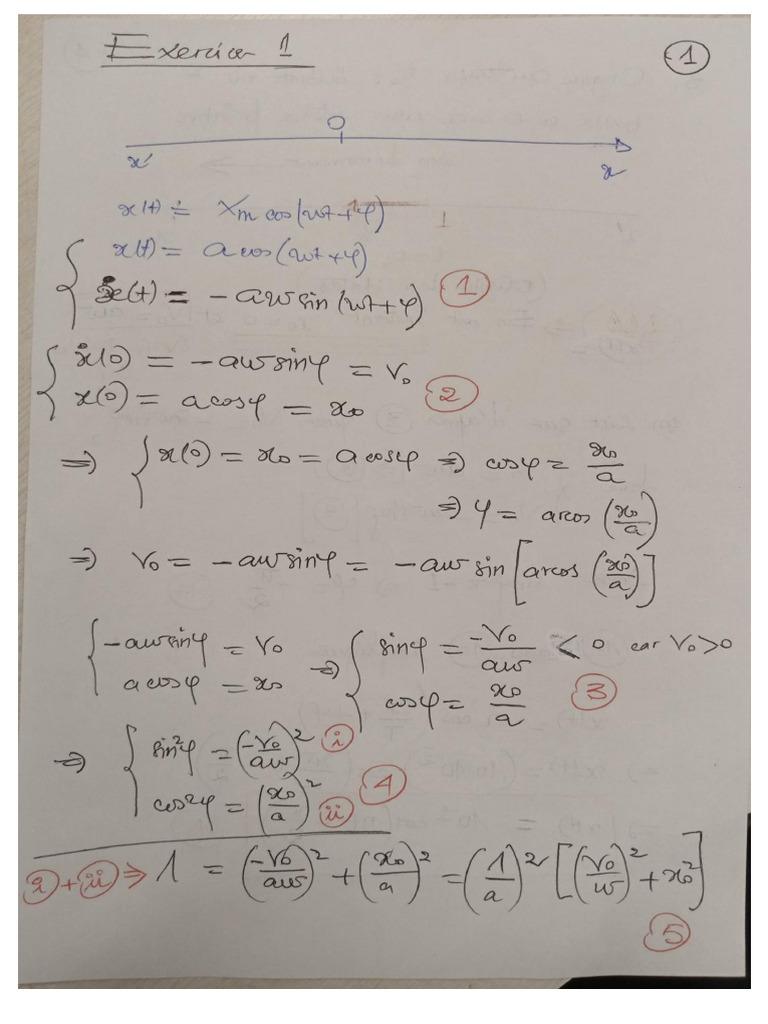 Exercice 1
①
O
x' x
x(t) = Xm cos(ωt+φ)
x(t) = a cos(ωt+φ)
ẋ(t) = -aω sin(ωt+φ) ①
ẋ(0) = -aω sinφ = V₀
x(0) = a cosφ = x₀ ②
⇒ { x(0) = x₀ = a cosφ ⇒ cosφ = x₀/a
⇒ φ = arcos (x₀/a)
⇒ V₀ = -aω sinφ = -aω sin[arcos (x₀/a)]
{ -aω sinφ = V₀ ⇒ { sinφ = -V₀/aω < 0 car V₀>0
a cosφ = x₀ cosφ = x₀/a ③
⇒ { sin²φ = (-V₀/aω)² ⓘ
cos²φ = (x₀/a)² ⓘⓘ ④
ⓘ+ⓘⓘ ⇒ 1 = (-V₀/aω)² + (x₀/a)² = (1/a)² [(V₀/ω)² + x₀²]
⑤